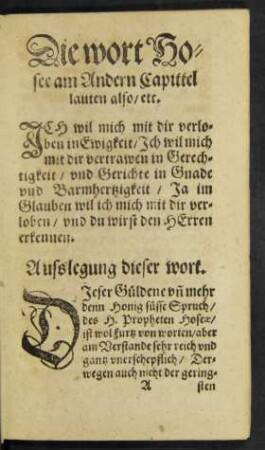 Die wort Ho⸗
see am Andern Capittel
lauten also/ etc.
ICH wil mich mit dir verlo⸗
ben in Ewigkeit/ Ich wil mich
mit dir vertrawen in Gerech⸗
tigkeit/ vnd Gerichte in Gnade
vnd Barmhertzigkeit/ Ja im
Glauben wil ich mich mit dir ver⸗
loben/ vnd du wirst den HErren
erkennen.
Ausslegung dieser wort.
DJeser Güldene vñ mehr
denn Honig süsse Spruch/
des H. Propheten Hoseæ/
ist wol kurtz von worten/ aber
am Verstande sehr reich vnd
gantz vnerschepflich/ Der⸗
wegen auch nicht der gering⸗
A sten